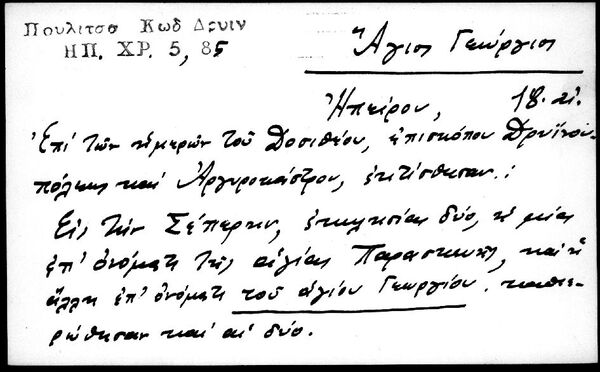 Πουλιτσα Κωδ Δρυιν
ΗΠ. ΧΡ. 5, 85
Ἅγιος Γεώργιος
Ἠπείρου, 18. αἰ.
Ἐπί τῶν ἡμερῶν τοῦ Δοσιθέου, ἐπισκόπου Δρυϊνου-
πόλεως καί Ἀργυροκάστρου, ἐκτίσθησαν :
Εἰς τήν Σέπερην, ἐκκλησίας δύο, ἡ μία
ἐπ' ὀνόματι τῆς ἁγίας Παρασκευῆς, καί ἡ
ἄλλη ἐπ' ὀνόματι τοῦ ἁγίου Γεωργίου. καθιε-
ρώθησαν καί αἱ δύο.